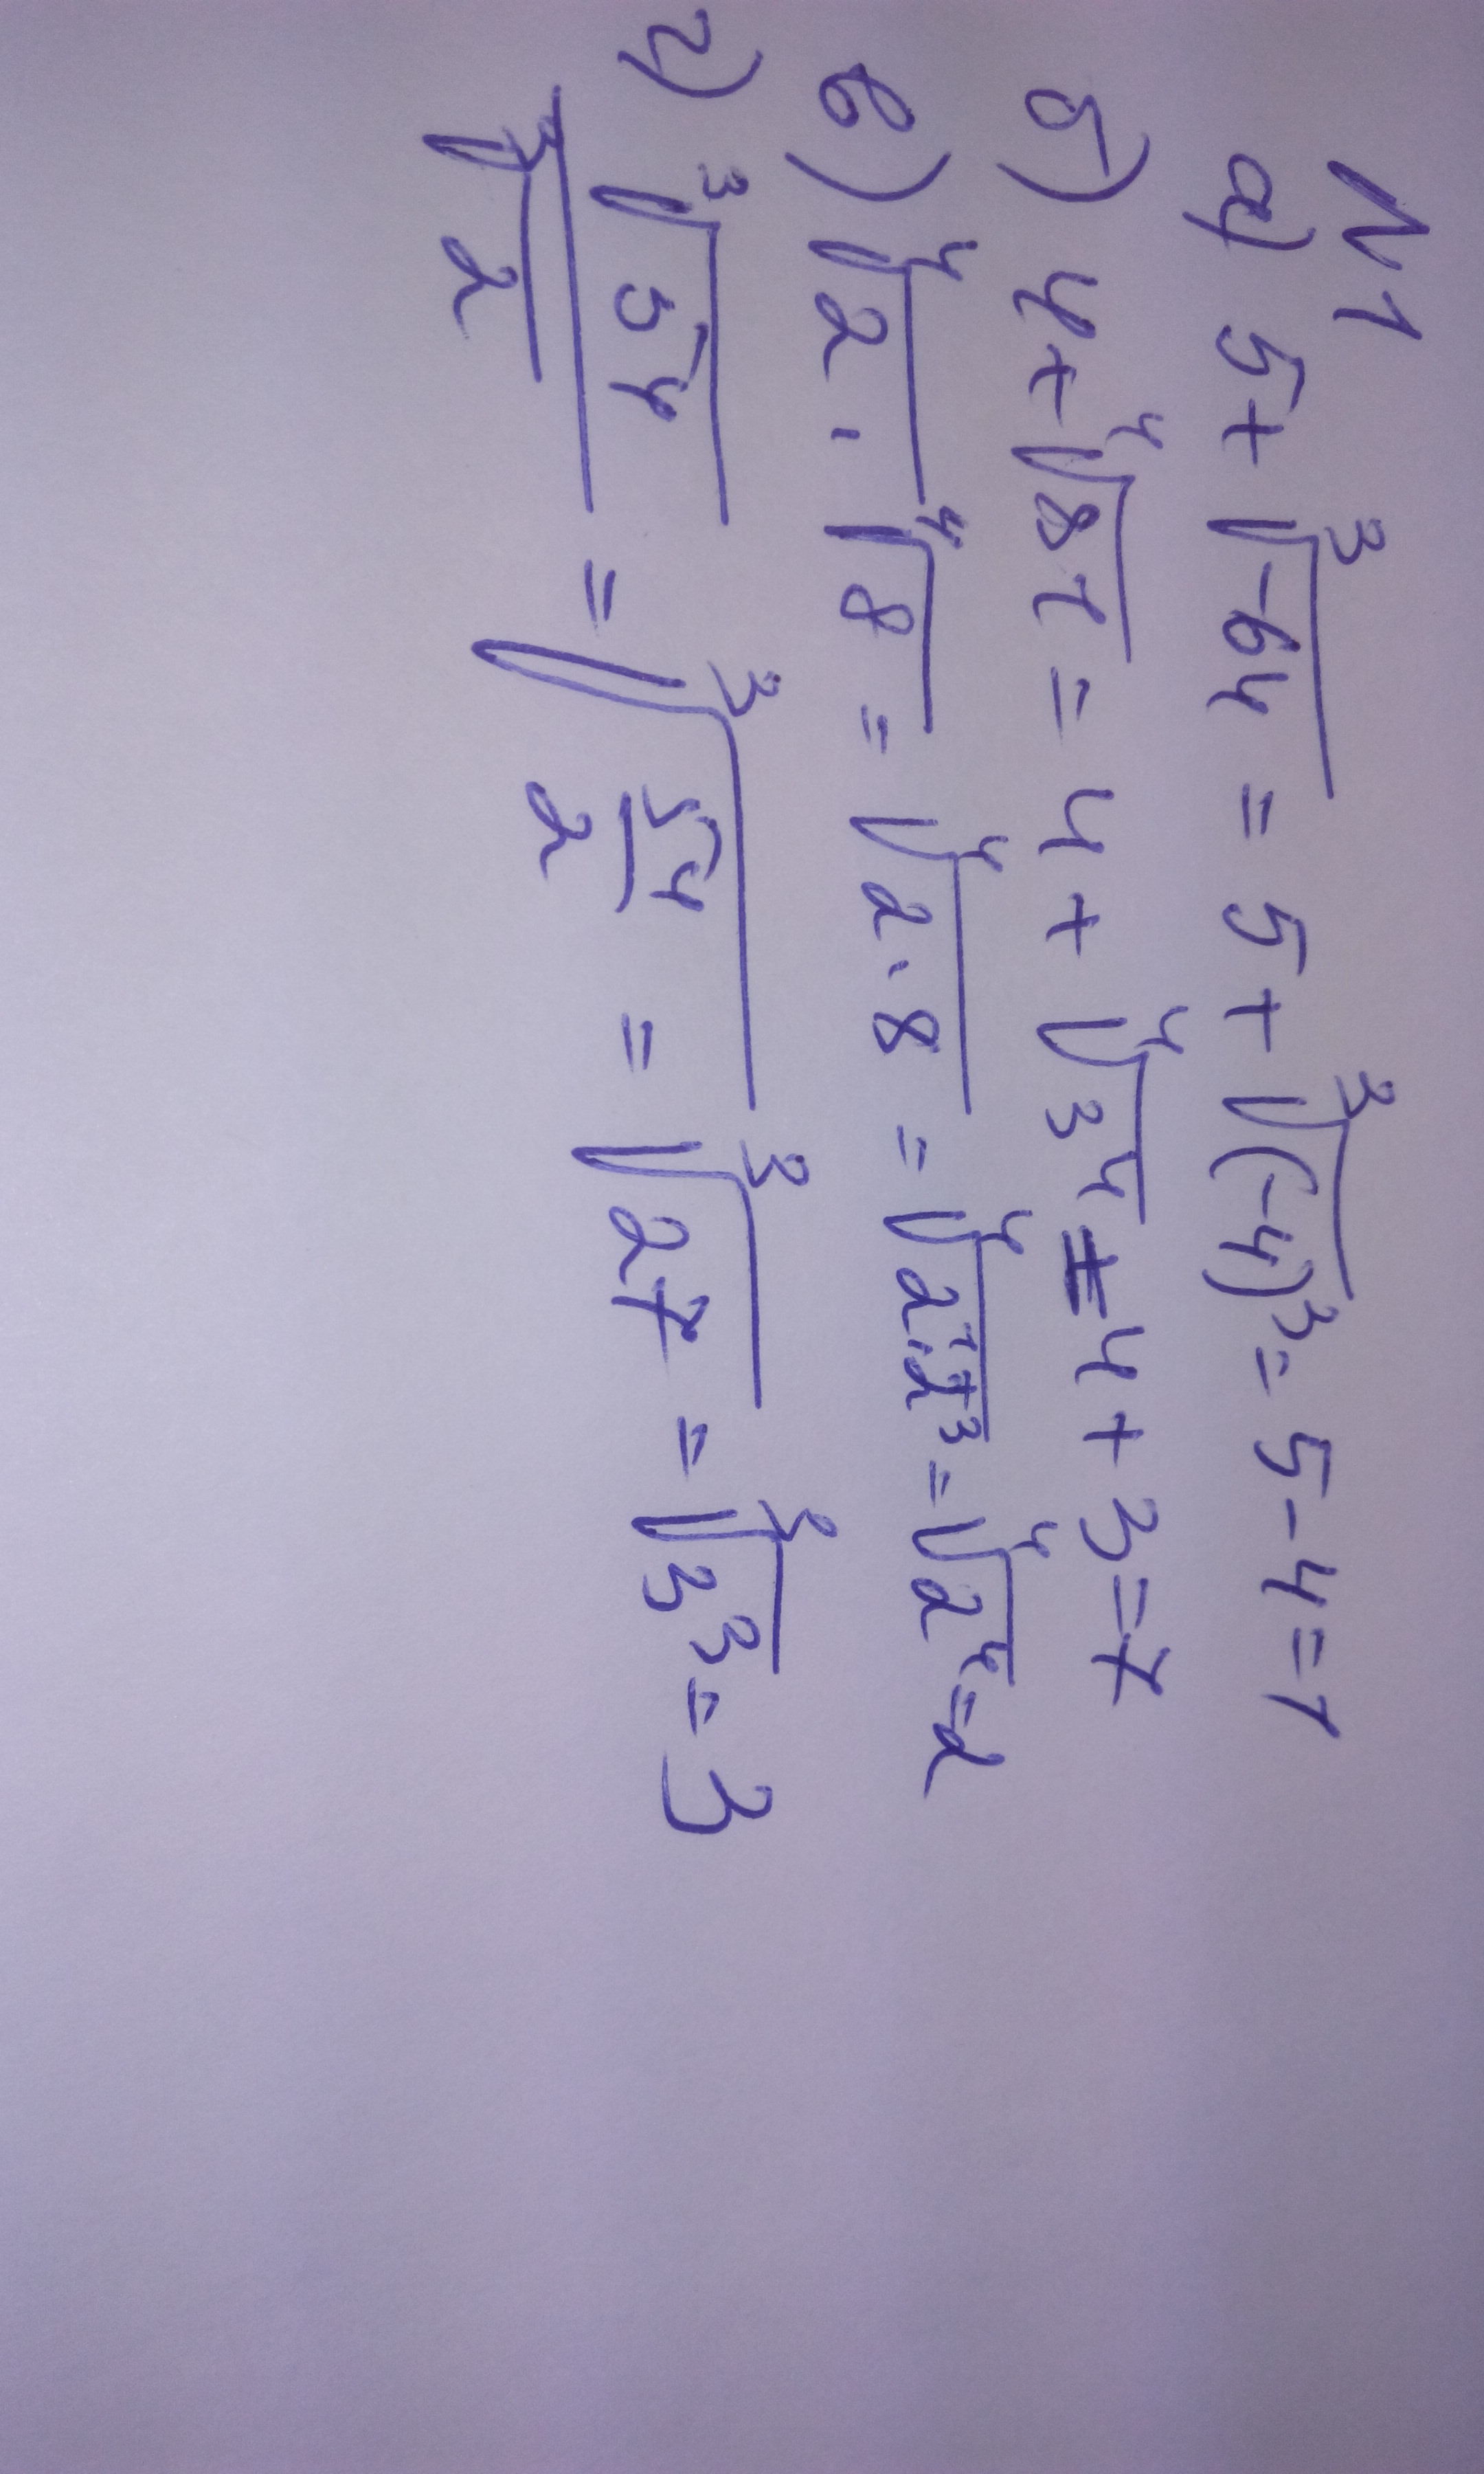 N1
а) 5+∛-64 = 5+∛(-4)³ = 5-4=1
б) 4+⁴√81 = 4+⁴√3⁴ = 4+3=7
в) ⁴√2 · ⁴√8 = ⁴√2·8 = ⁴√2¹·2³ = ⁴√2⁴ = 2
г) ∛54 / ∛2 = ∛54/2 = ∛27 = ∛3³ = 3